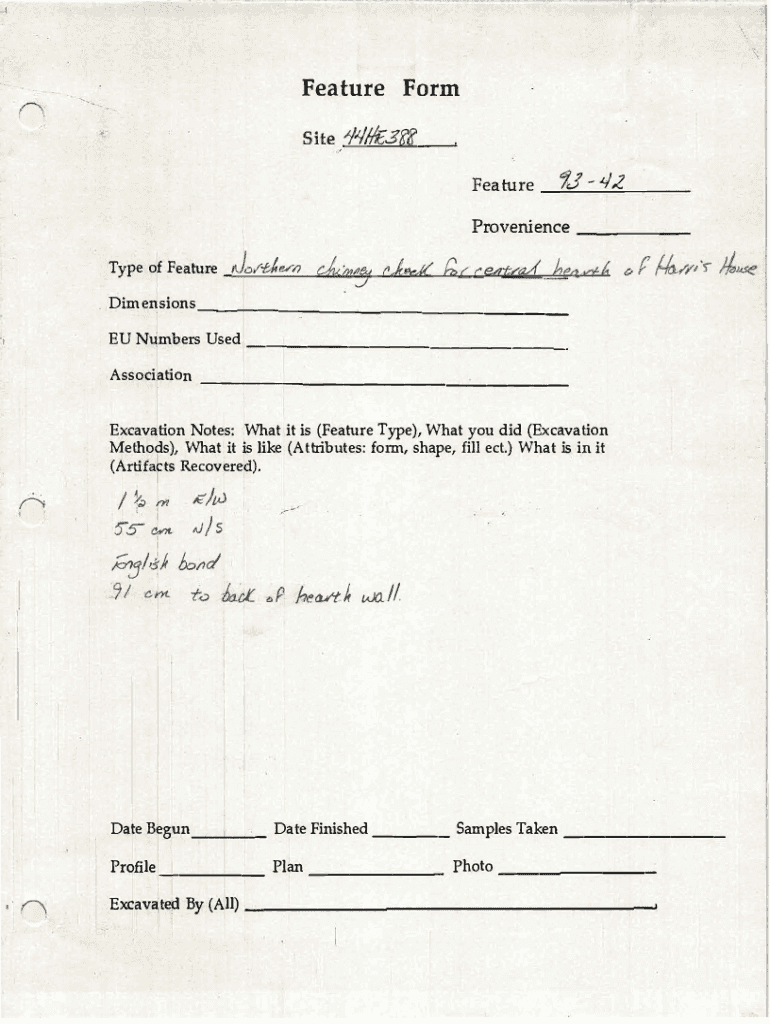 Feature Form
Site 44HE388
Feature 93-42
Provenience
Type of Feature Northern chimney cheek for central hearth of Harris House
Dimensions
EU Numbers Used
Association
Excavation Notes: What it is (Feature Type), What you did (Excavation
Methods), What it is like (Attributes: form, shape, fill ect.) What is in it
(Artifacts Recovered).
1 ½ m E/W
55 cm N/S
English bond
91 cm to back of hearth wall.
Date Begun Date Finished Samples Taken
Profile Plan Photo
Excavated By (All)